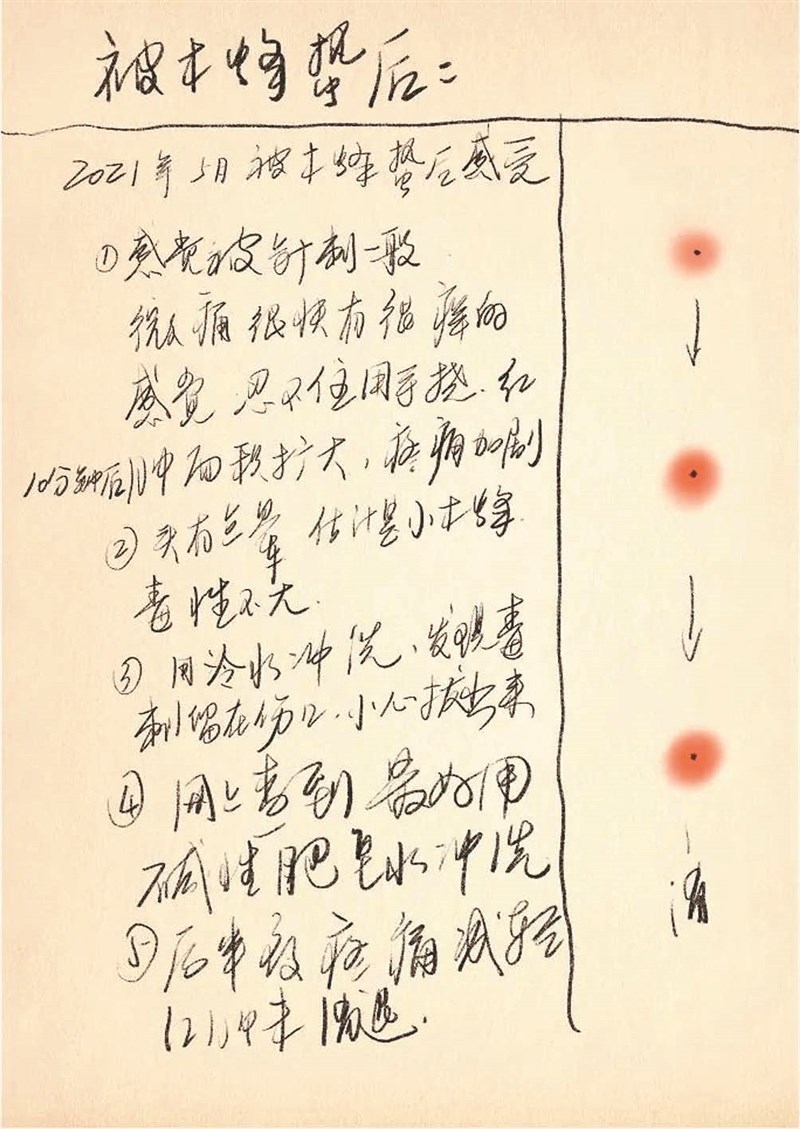 被木蜂蜇后：
2021年5月被木蜂蜇后感受
①感觉被针刺一般
微痛很快有很痒的
感觉 忍不住用手挠.红
10分钟后肿面积扩大，疼痛加剧
②头有点晕 估计是小木蜂.
毒性不大.
③用冷水冲洗、发现毒
刺留在伤口.小心拔出来
④网上查到 最好用
碱性肥皂水冲洗
⑤后半夜疼痛减轻
但肿未消退.
消